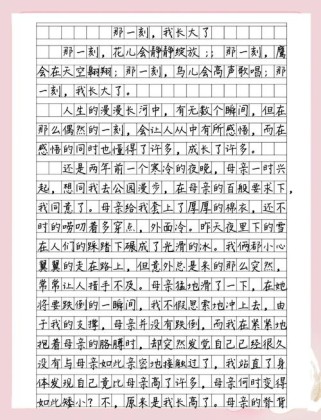 那一刻，我长大了
那一刻，花儿会静静绽放；；那一刻，鹰
会在天空翱翔；那一刻，鸟儿会高声歌唱；那
一刻，我长大了。
人生的漫漫长河中，有无数个瞬间，但在
那么偶然的一刻，会让人从中有所感悟，而在
感悟的同时也懂得了许多，成长了许多。
还是两年前一个寒冷的夜晚，母亲一时兴
起，想同我去公园漫步，在母亲的百般要求下，
我同意了。母亲给我套上了厚厚的棉衣，还不
时的唠叨着多穿点，外面冷。昨天夜里下的雪
在人们的踩踏下碾成了光滑的冰。我俩都小心
翼翼的走在路上，但意外总是来的那么突然，
常常让人措手不及。母亲猛地滑了一下，在她
将要跌倒的一瞬间，我不假思索地冲上去，由
于我的支撑，母亲并没有跌倒，而我在紧紧地
抱着母亲的胳膊时，却突然发觉自己已经很久
没有与母亲如此亲密地接触过了，我站直了身
体发现自己竟比母亲高了许多，母亲何时变得
如此矮小？不，原来是我长高了。母亲的脊背